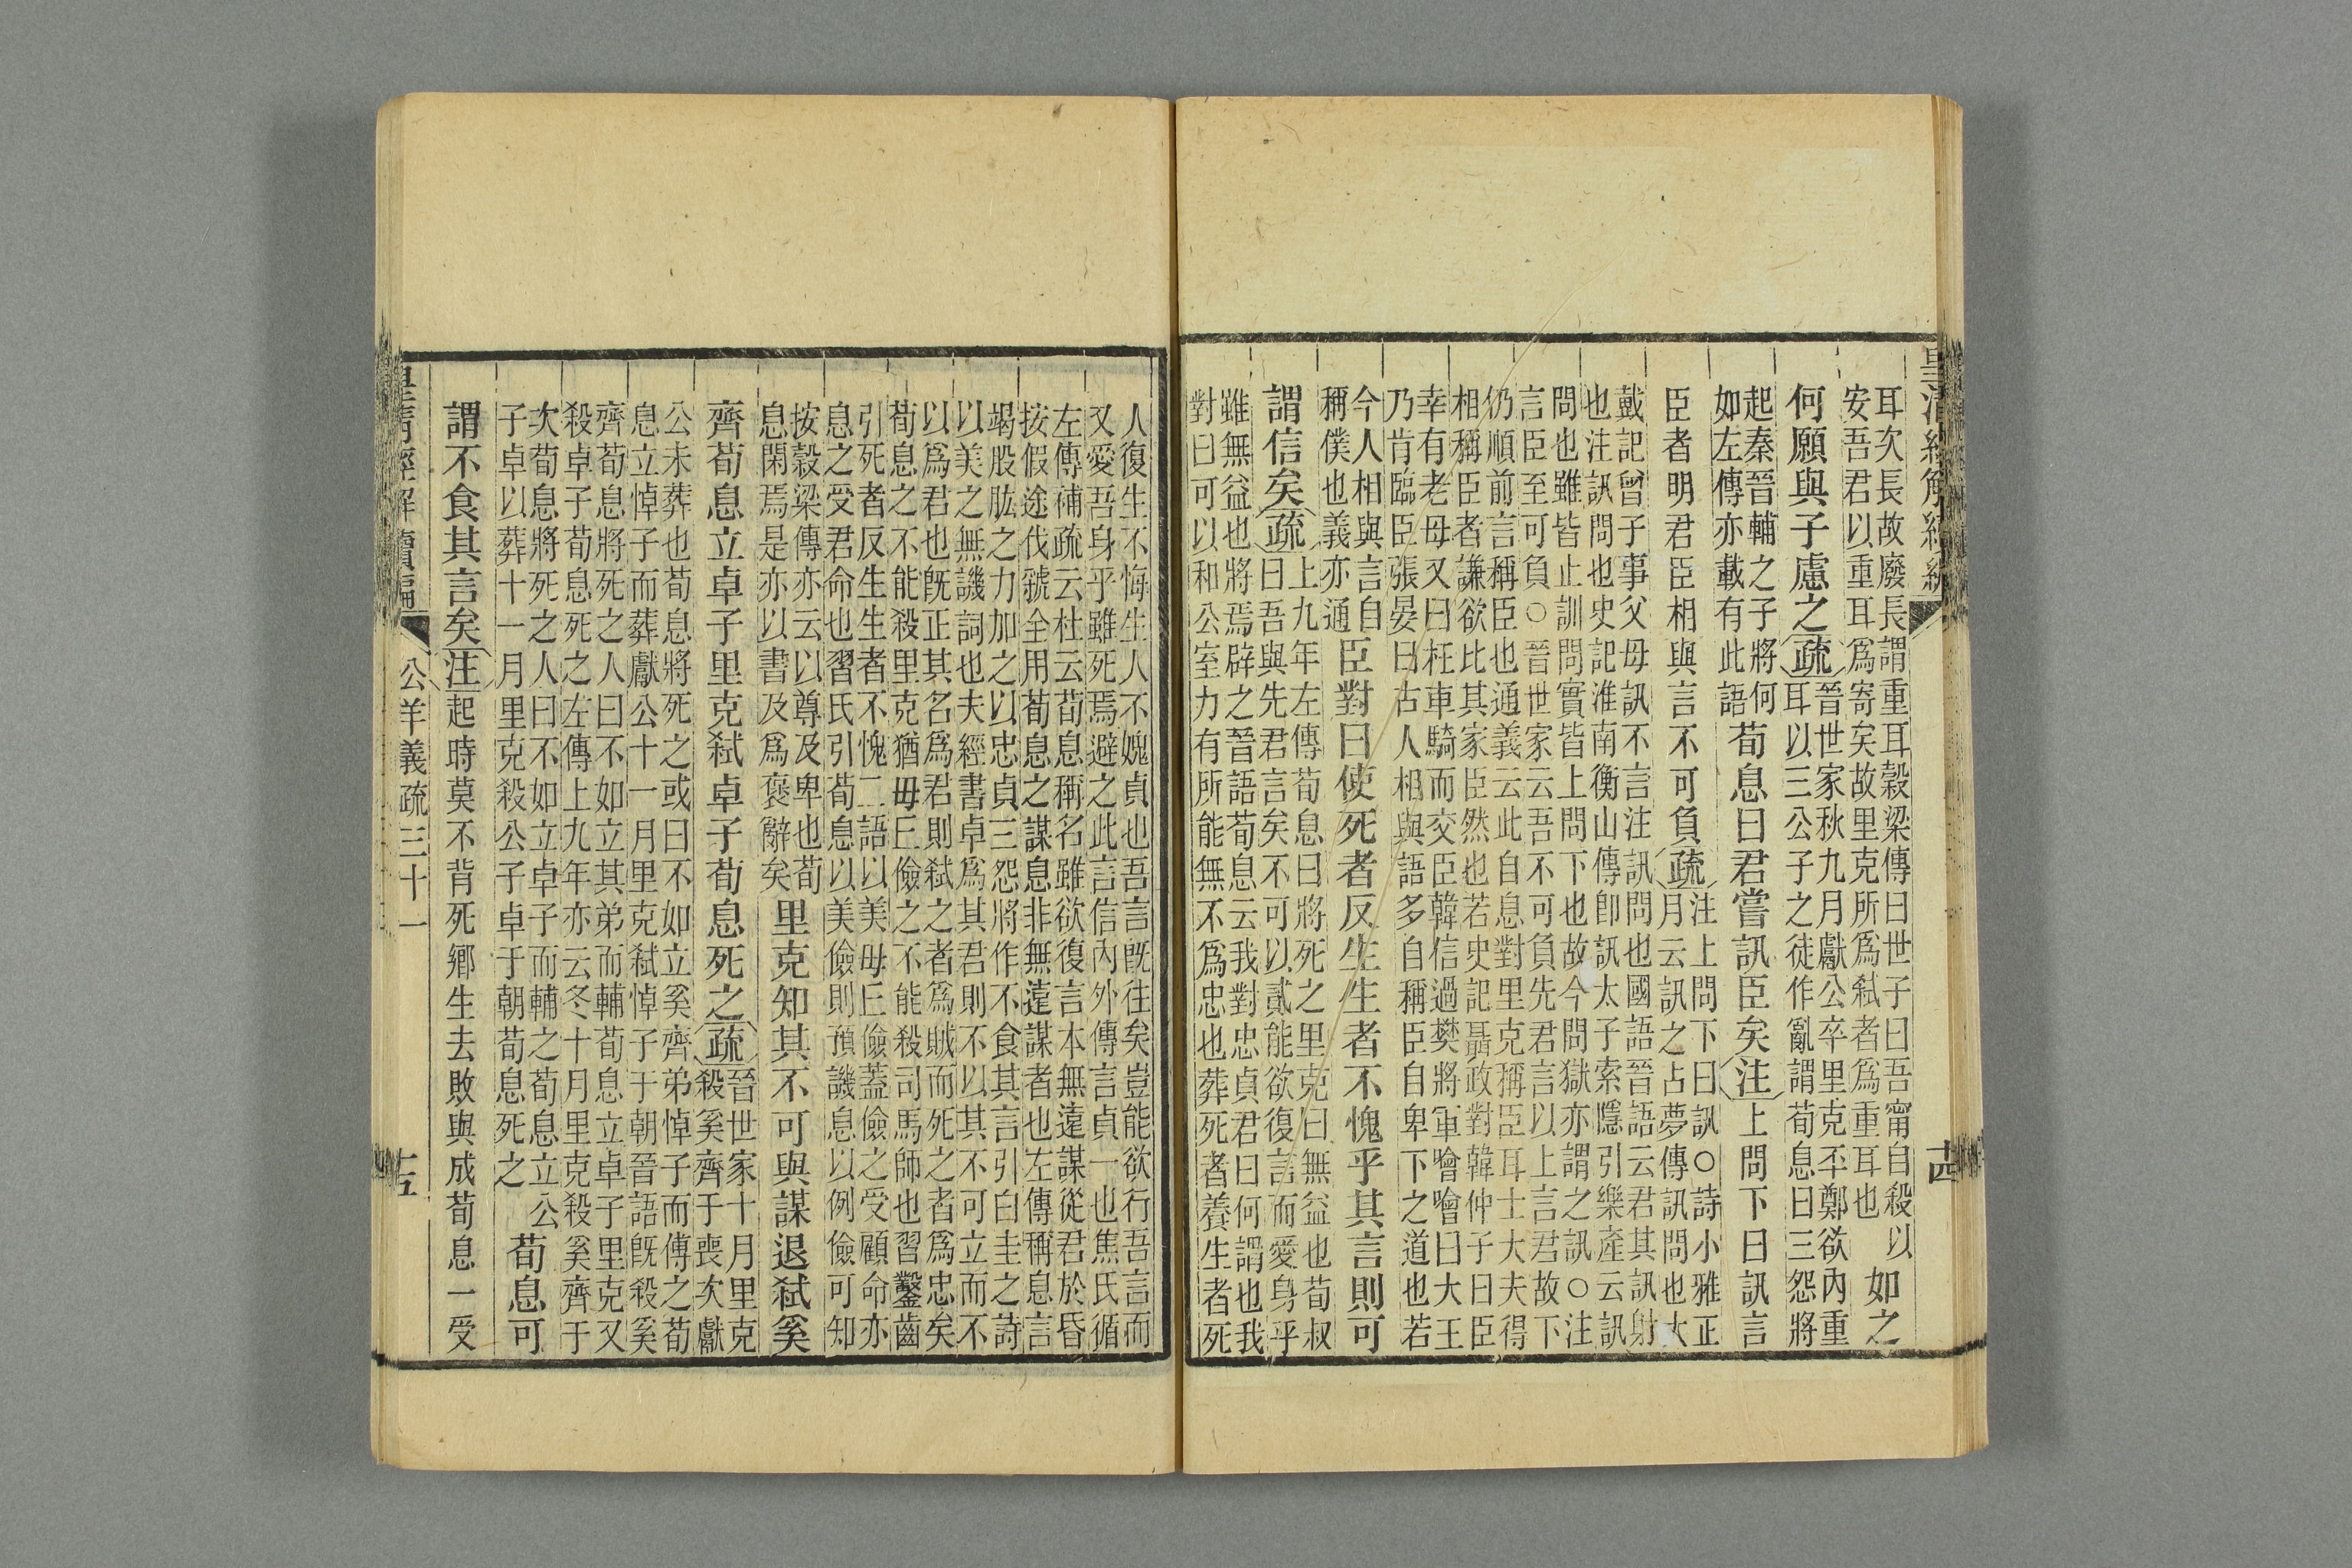 皇清經解續編
十四
耳次長故廢長謂重耳穀梁傳曰世子曰吾甯自殺以
安吾君以重耳爲寄矣故里克所爲弒者爲重耳也
如之
何願與子慮之疏
晉世家秋九月獻公卒里克丕鄭欲內重
耳以三公子之徒作亂謂荀息曰三怨將
起秦晉輔之子將何
如左傳亦載有此語
荀息曰君嘗訊臣矣注上問下曰訊言
臣者明君臣相與言不可負疏
注上問下曰訊○詩小雅正
月云訊之占夢傳訊問也大
戴記曾子事父母訊不言注訊問也國語晉語云君其訊射
也注訊問也史記淮南衡山傳卽訊太子索隱引樂產云訊
問也雖皆止訓問實皆上問下也故今問獄亦謂之訊○注
言臣至可負○晉世家云吾不可負先君言以上言君故下
仍順前言稱臣也通義云此自息對里克稱臣耳士大夫得
相稱臣者謙欲比其家臣然也若史記聶政對韓仲子曰臣
幸有老母又曰枉車騎而交臣韓信過樊將軍噲噲曰大王
乃肯臨臣張晏曰古人相與語多自稱臣自卑下之道也若
今人相與言自
稱僕也義亦通
臣對曰使死者反生生者不愧乎其言則可
謂信矣疏
上九年左傳荀息曰將死之里克曰無益也荀叔
曰吾與先君言矣不可以貳能欲復言而愛身乎
雖無益也將焉辟之晉語荀息云我對忠貞君曰何謂也我
對曰可以和公室力有所能無不爲忠也葬死者養生者死
人復生不悔生人不媿貞也吾言旣往矣豈能欲行吾言而
又愛吾身乎雖死焉避之此言信內外傳言貞一也焦氏循
左傳補疏云杜云荀息稱名雖欲復言本無遠謀從君於昏
按假途伐虢全用荀息之謀息非無遠謀者也左傳稱息言
竭股肱之力加之以忠貞三怨將作不食其言引白圭之詩
以美之無譏詞也夫經書卓爲其君則不以其不可立而不
以爲君也旣正其名爲君則弒之者爲賊而死之者爲忠矣
荀息之不能殺里克猶毋丘儉之不能殺司馬師也習鑿齒
引死者反生生者不愧二語以美毋丘儉蓋儉之受顧命亦
息之受君命也習氏引荀息以美儉則預譏息以例儉可知
按穀梁傳亦云以尊及卑也荀
息閑焉是亦以書及爲褒辭矣
里克知其不可與謀退弒奚
齊荀息立卓子里克弒卓子荀息死之疏
晉世家十月里克
殺奚齊于喪次獻
公未葬也荀息將死之或曰不如立奚齊弟悼子而傅之荀
息立悼子而葬獻公十一月里克弒悼子于朝晉語旣殺奚
齊荀息將死之人曰不如立其弟而輔荀息立卓子里克又
殺卓子荀息死之左傳上九年亦云冬十月里克殺奚齊于
次荀息將死之人曰不如立卓子而輔之荀息立公
子卓以葬十一月里克殺公子卓于朝荀息死之
荀息可
謂不食其言矣注起時莫不背死鄉生去敗與成荀息一受
皇清經解續編
公羊義疏三十一
十五